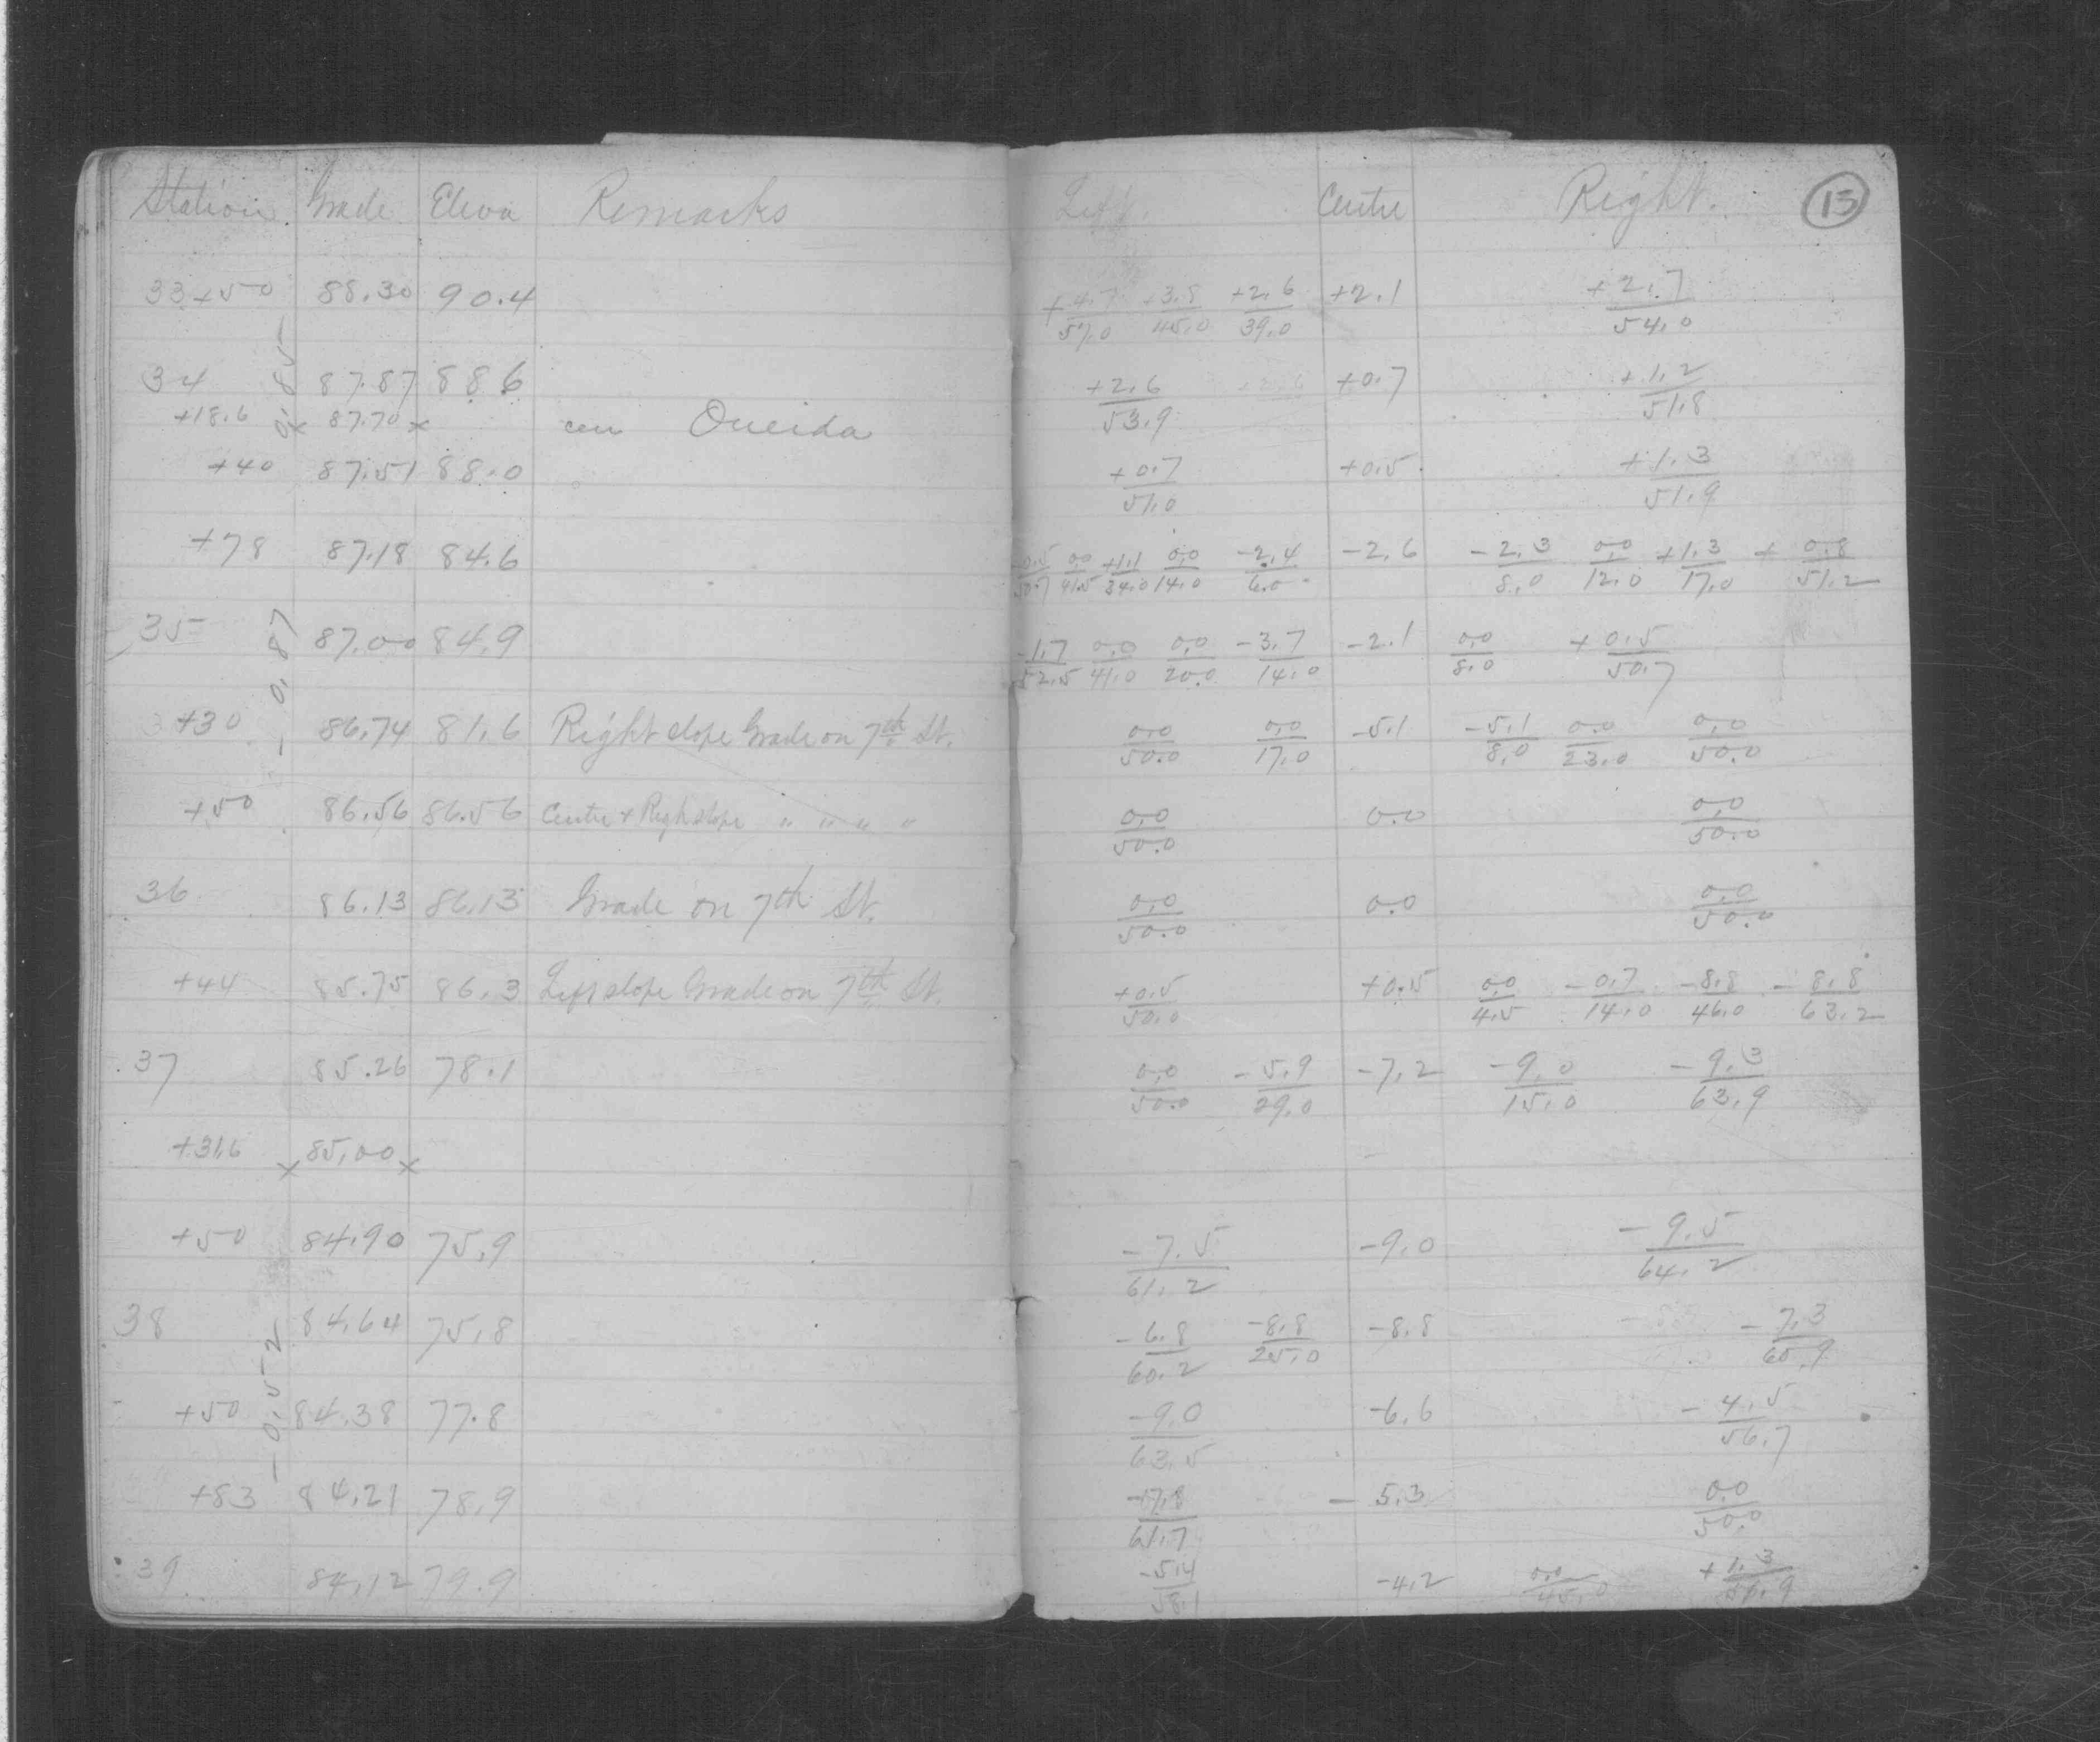 Station Grade Eleva Remarks Left. Centre Right. 15
33+50 88.30 90.4 +4.7/57.0 +3.8/45.0 +2.6/39.0 +2.1 +2.7/54.0
0.85
34 87.87 88.6 +2.6/53.9 +0.7 +1.2/51.8
+18.6 x 87.70 x cen Oneida
+40 87.51 88.0 +0.7/51.0 +0.5 +1.3/51.9
+78 87.18 84.6 0.0/41.5 +1.1/34.0 0.0/14.0 -2.4/6.0 -2.6 -2.3/8.0 0.0/12.0 +1.3/17.0 +0.8/51.2
35 87.00 84.9 -1.7/52.5 0.0/41.0 0.0/20.0 -3.7/14.0 -2.1 0.0/8.0 +0.5/50.7
- 0.87
+30 86.74 81.6 Right slope Grade on 7th St. 0.0/50.0 0.0/17.0 -5.1 -5.1/8.0 0.0/23.0 0.0/50.0
+50 86.56 86.56 Centre + Righ slope " " " " 0.0/50.0 0.0 0.0/50.0
36 86.13 86.13 Grade on 7th St. 0.0/50.0 0.0 0.0/50.0
+44 85.75 86.3 Left slope Grade on 7th St. +0.5/50.0 +0.5 0.0/4.5 -0.7/14.0 -8.8/46.0 -8.8/63.2
37 85.26 78.1 0.0/50.0 -5.9/29.0 -7.2 -9.0/15.0 -9.3/63.9
+31.6 x 85.00 x
+50 84.90 75.9 -7.5/61.2 -9.0 -9.5/64.2
38 84.64 75.8 -6.8/60.2 -8.8/25.0 -8.8 -7.3/60.9
- 0.52
+50 84.38 77.8 -9.0/63.5 -6.6 -4.5/56.7
+83 84.21 78.9 -7.8/61.7 -5.3 0.0/50.0
39 84.12 79.9 -5.4/58.1 -4.2 0.0/45.0 +1.3/51.9